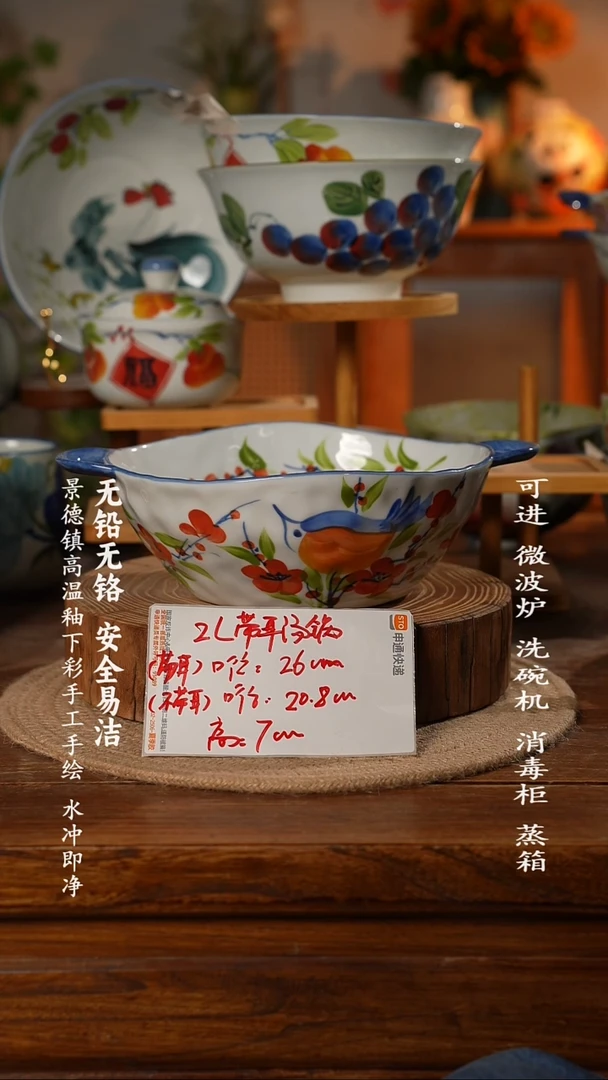 无铅无铬 安全易洁
景德镇高温釉下彩手工手绘 水冲即净
可进 微波炉 洗碗机 消毒柜 蒸箱
STO
申通快递
2L带耳汤锅
(带耳)口径:26cm
(不带耳)口径:20.8cm
高:7cm